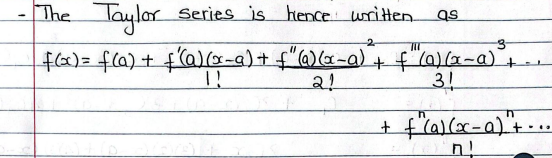 - The Taylor series is hence written as
f(x) = f(a) + f'(a)(x-a)/1! + f''(a)(x-a)²/2! + f'''(a)(x-a)³/3! + ...
+ fⁿ(a)(x-a)ⁿ/n! + ...